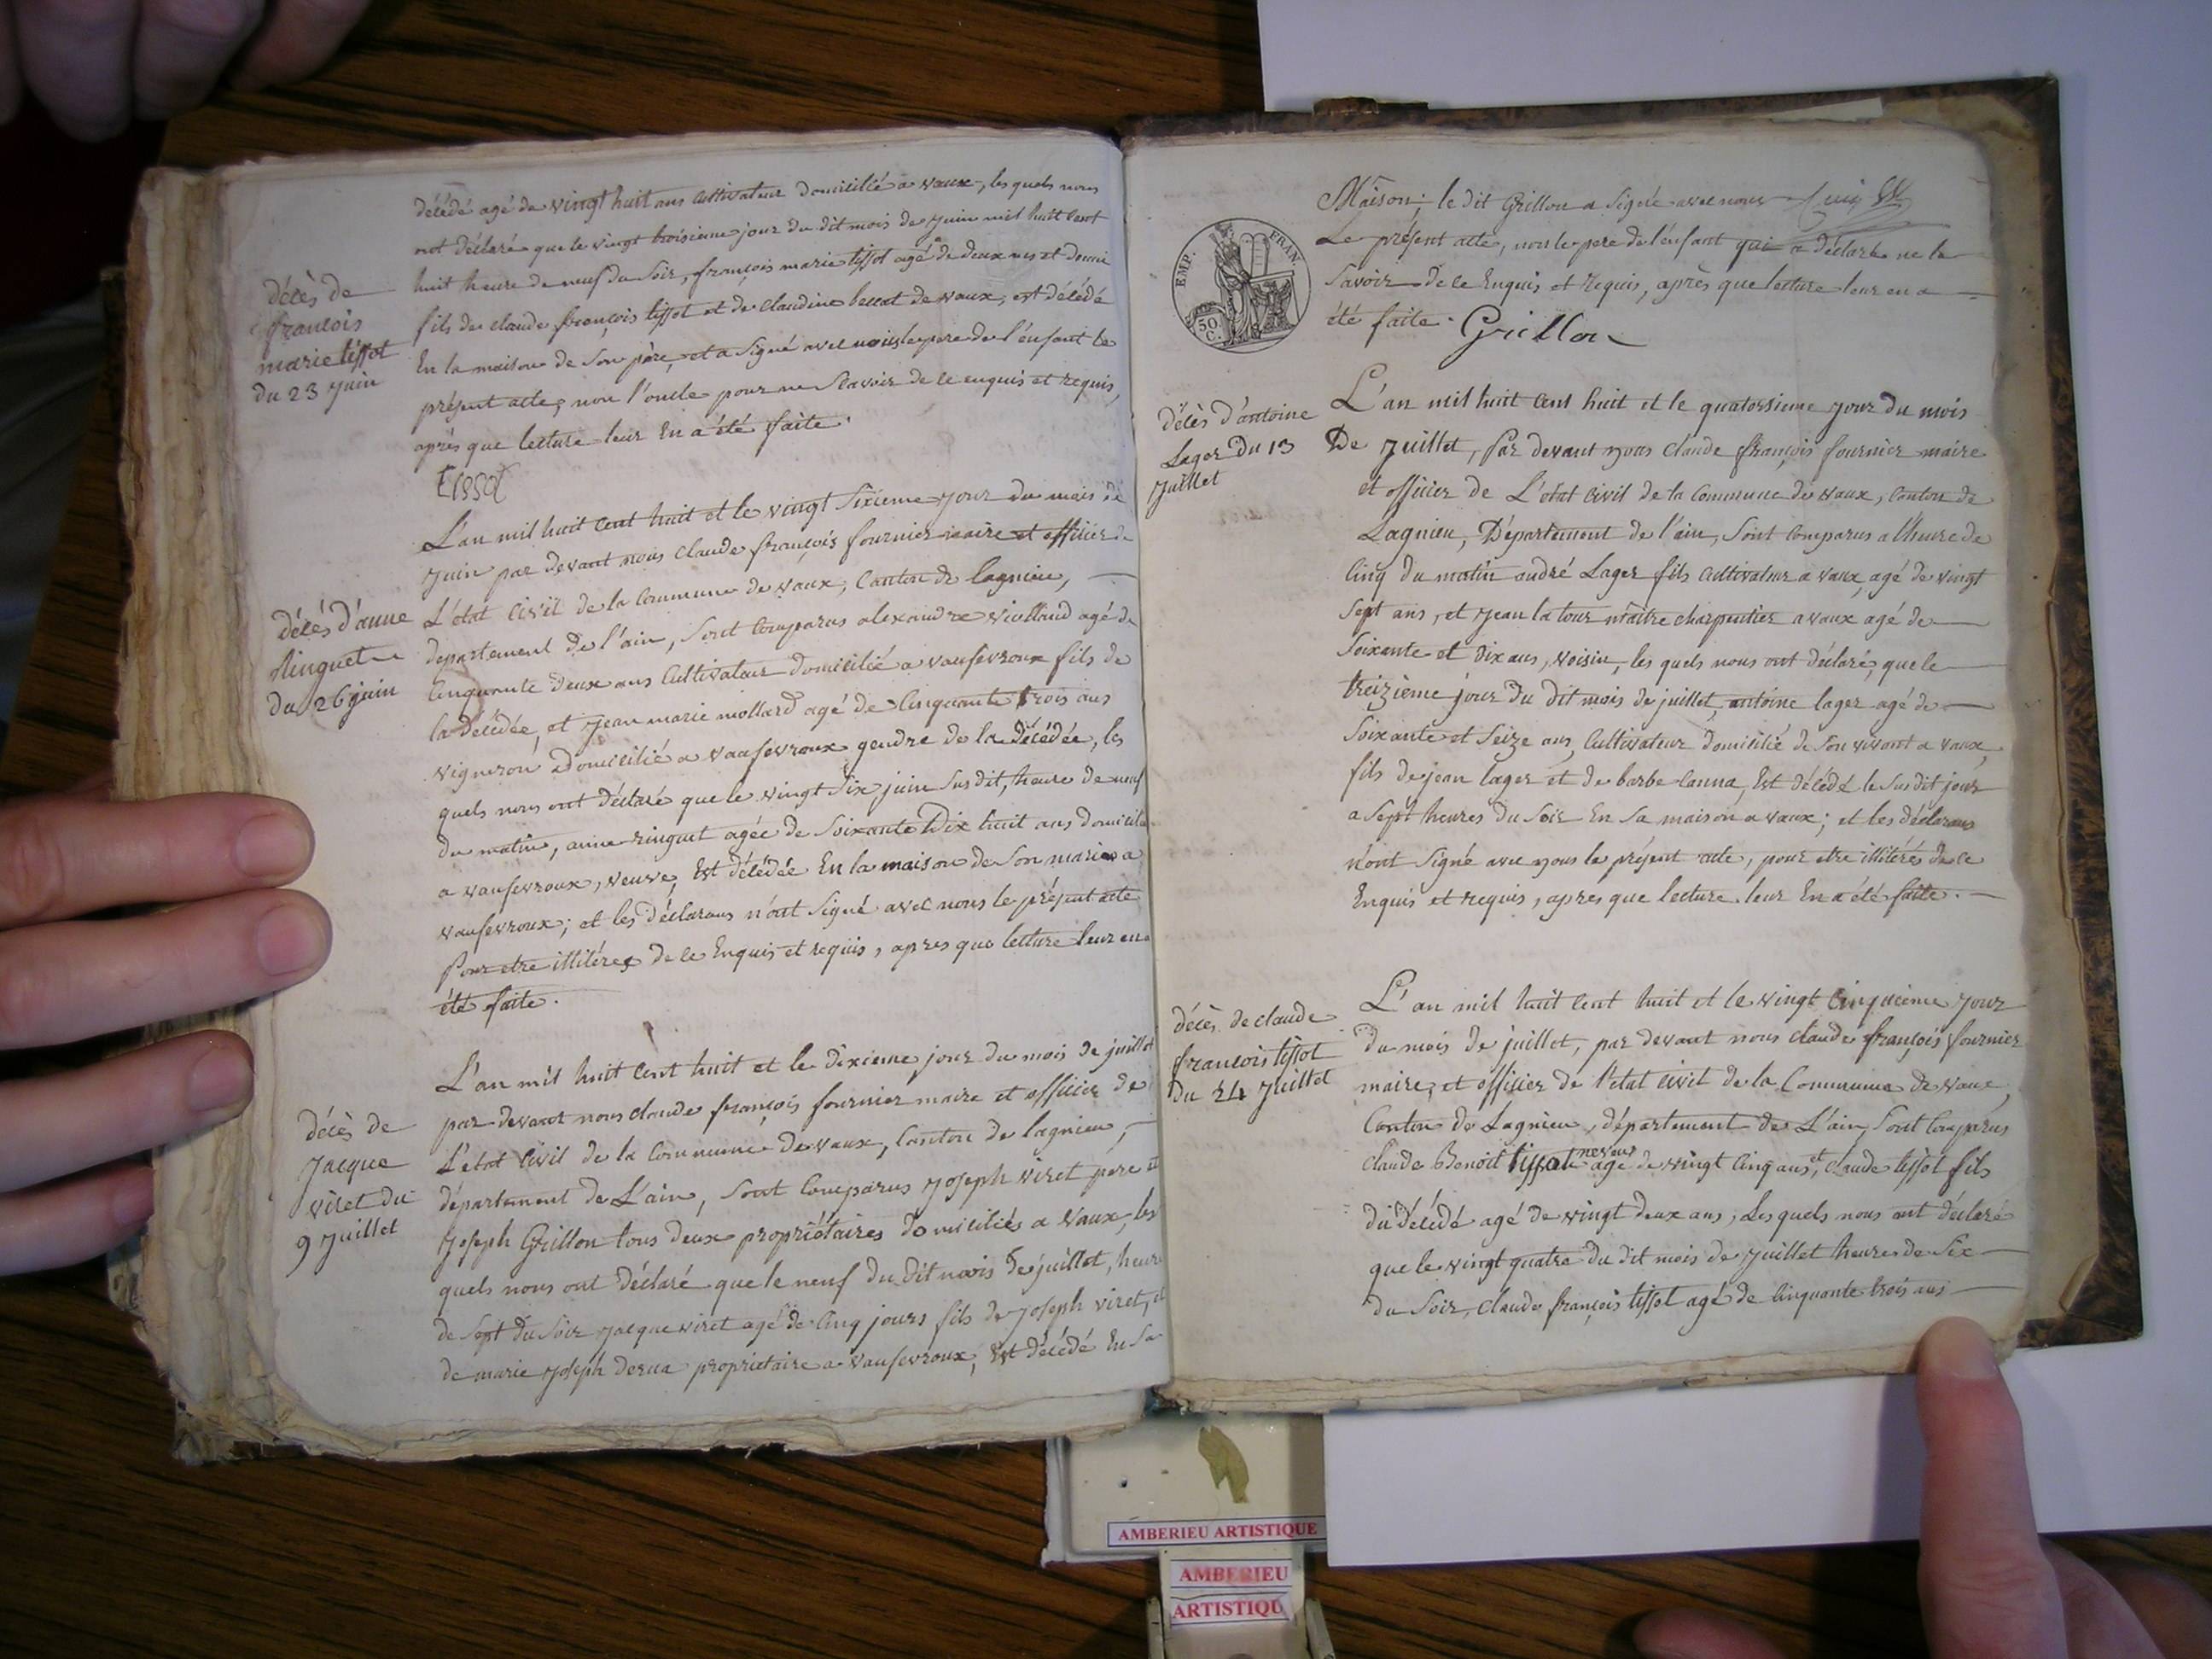 décédé agé de vingt huit ans Cultivateur domicilié a vaux, les quels nous
ont déclaré que le vingt troisieme jour du dit mois de Juin mil huit Cent
huit heure de neuf du Soir, françois marie tissot agé de deux ans et demi
fils de claude françois tissot et de claudine de vaux, est décédé
En la maison de Son père, et a Signé avec nous le pere de l'énfant le
présent acte, non l'oncle pour ne Scavoir de ce enquis et requis,
après que lecture leur En a été faite.
Tissot
décès de
francois
marie tissot
du 23 Juin
L'an mil huit Cent huit et le vingt Sixieme Jour du mois de
Juin par devant nous Claude françois fournier maire et officier de
L'état Civil de la Commune de vaux, Canton de lagnieu,
departement de l'ain, Sont Comparus alexandre violland agé de
Cinquante deux ans Cultivateur domicilié a vaufevroux fils de
la décédée, et Jean marie mollard agé de Cinquante trois ans
vigneron domicilié a vaufevroux gendre de la décédée, les
quels nous ont déclaré que le vingt Six juin Sus dit, heure de neuf
du matin, anne ringuet agée de Soixante Dix huit ans domicilié
a vaufevroux, veuve, Est décédée En la maison de Son mari a
vaufevroux; et les déclarans n'ont Signé avec nous le présent acte
Pour etre illitéres de ce Enquis et requis, apres que lecture leur en a
été faite.
décès d'anne
Ringuet
du 26 juin
L'an mil huit Cent huit et le dixieme jour du mois de juillet
par devant nous claude françois fournier maire et officier de
L'état Civil de la Commune de vaux, Canton de lagnieu,
département de L'ain, Sont Comparus Joseph viret père et
Joseph Grillon tous deux propriétaires domiciliés a Vaux, les
quels nous ont déclaré que le neuf du dit mois de juillet, heure
de Sept du Soir Jacque viret agé de Cinq jours fils de Joseph viret, et
de marie Joseph propriétaire a vaufevroux, Est décédé En Sa
décès de
Jacque
viret du
9 Juillet
Maison; le dit Grillon a Signé avec nous
Le présent acte, non le pere de l'énfant qui a déclaré ne le
Savoir de ce Enquis et requis, après que lecture leur en a
été faite. Grillon
EMP. FRAN.
50
C.
L'an mil huit Cent huit et le quatorzieme Jour du mois
De Juillet, Par devant nous claude françois fournier maire
et officier de L'état Civil de la Commune de vaux, Canton de
Lagnieu, Département de l'ain, Sont Comparus a l'heure de
Cinq du matin andré Lager fils Cultivateur a vaux, agé de vingt
Sept ans, et Jean la tour maitre charpentier a vaux agé de
Soixante et dix ans, voisin, les quels nous ont déclaré, que le
treizième jour du dit mois de juillet, antoine lager agé de
Soixante et Seize ans, Cultivateur domicilié de Son vivant a vaux,
fils de jean lager et de barbe Canna, Est décédé le Sus dit jour
a Sept heures du Soir En Sa maison a vaux; et les déclarans
n'ont Signé avec nous le présent acte, pour etre illitérés de ce
Enquis et requis, apres que lecture leur En a été faite.
décès d'antoine
Lager du 13
Juillet
L'an mil huit Cent huit et le vingt Cinquieme Jour
du mois de juillet, par devant nous claude françois fournier
maire, et officier de l'état Civil de la Commune de vaux,
Canton de Lagnieu, département de L'ain, Sont Comparus
Claude Benoit tissot neveux agé de vingt Cinq ans, et claude tissot fils
du décédé agé de vingt deux ans, Les quels nous ont déclaré
que le vingt quatre du dit mois de Juillet heure de Six
du Soir, Claude françois tissot agé de Cinquante trois ans
décès de claude
francois tissot
du 24 Juillet
AMBERIEU ARTISTIQUE
AMBERIEU
ARTISTIQU